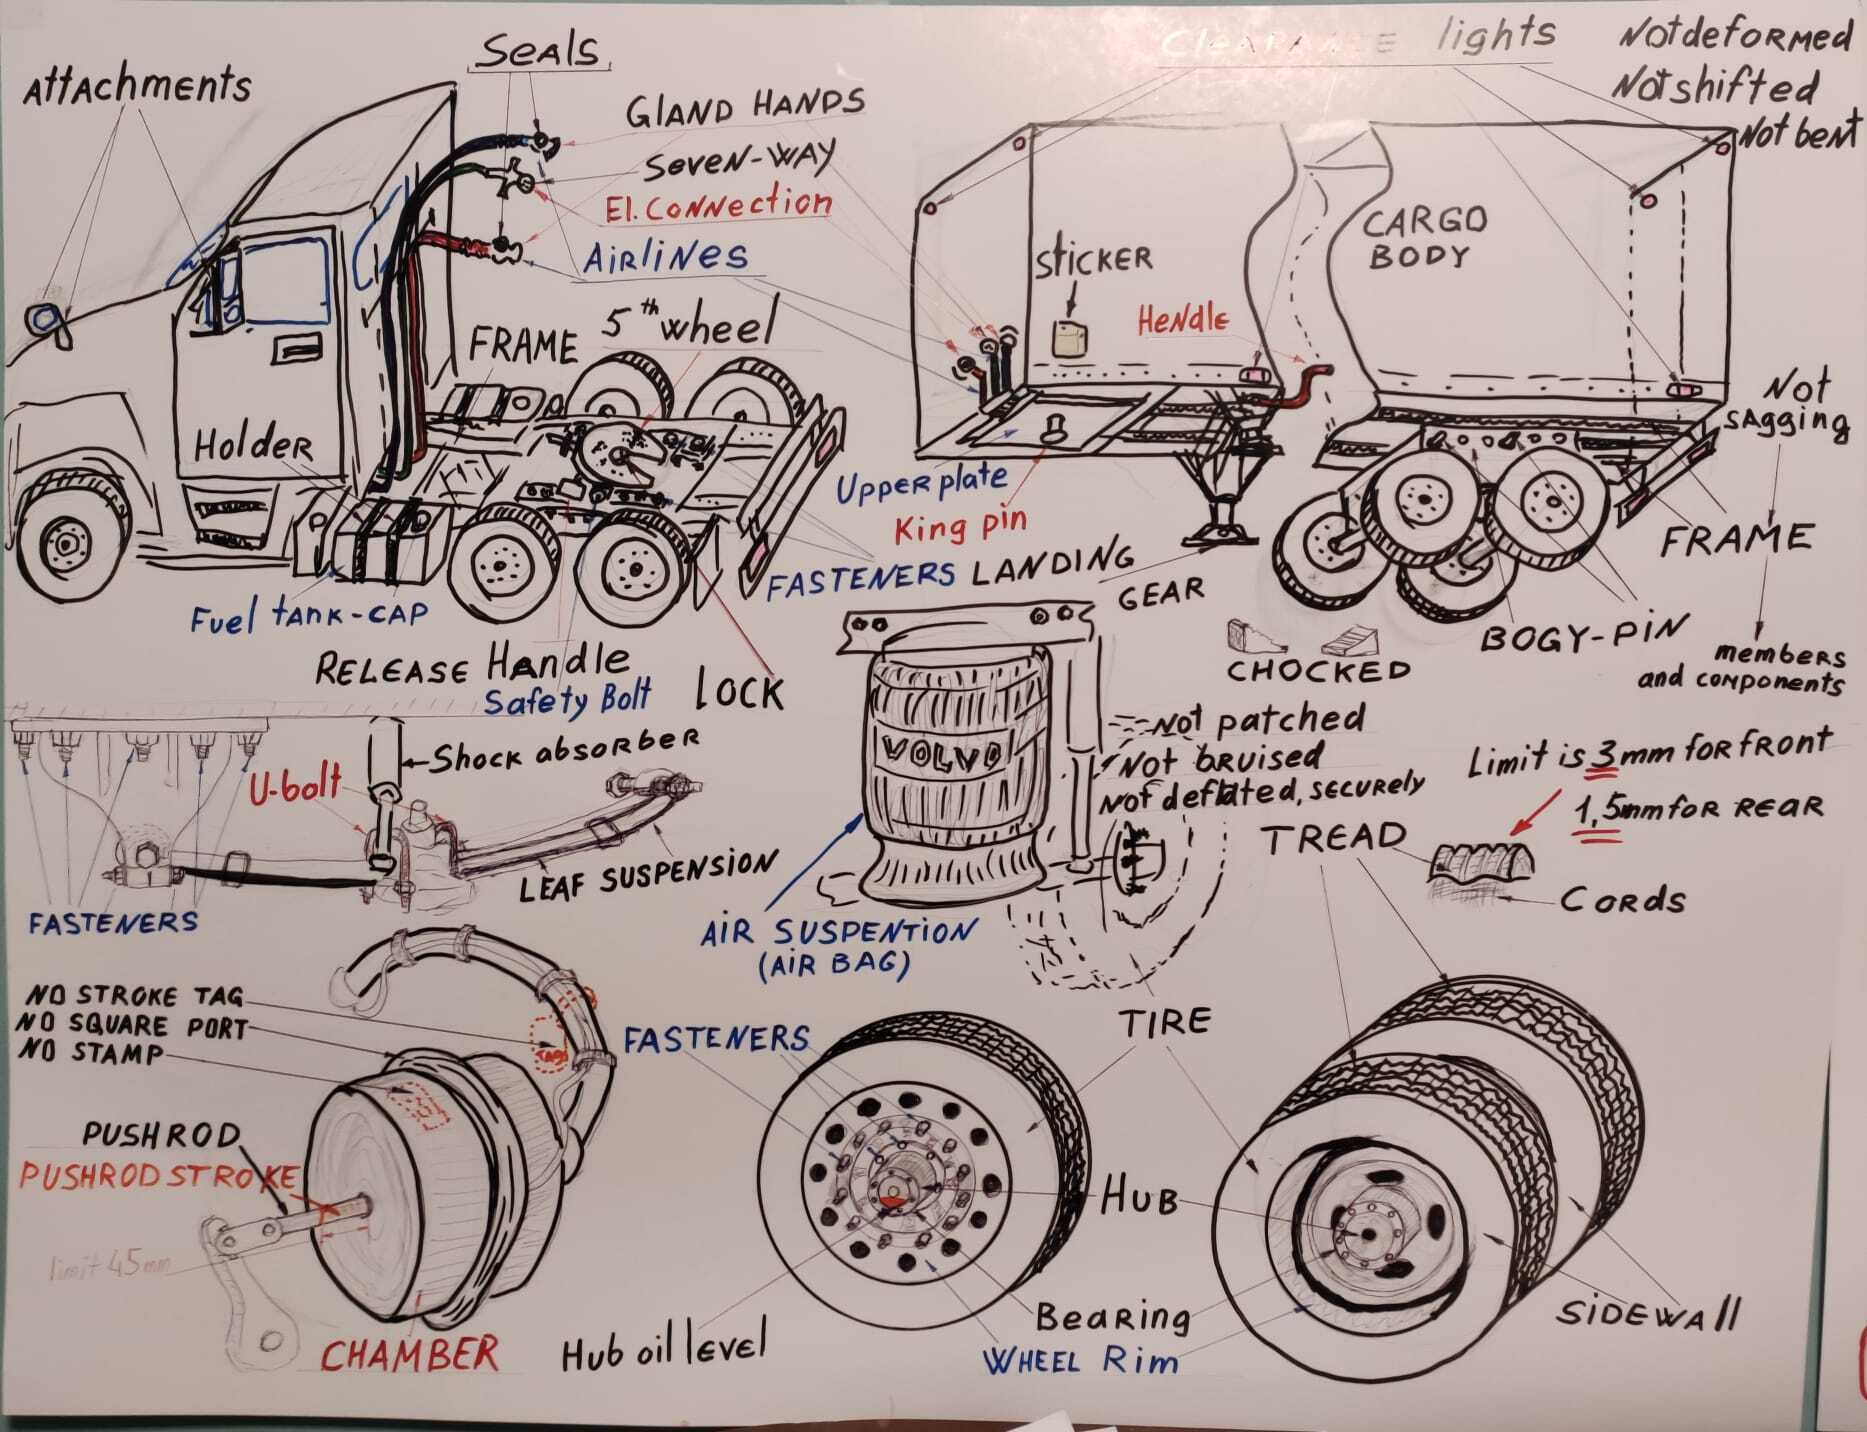 Attachments
Seals
GLAND HANDS
SEVEN-WAY
El. CONNection
AiRLiNES
FRAME
5th wheel
Holder
Fuel tANK-CAP
RELEASE HANdle
Safety Bolt
LOCK
FASTENERS
CLEARANCE lights
Not deformed
Not shifted
Not bent
CARGO
BODY
STICKER
HeNdle
Upper plate
King pin
LANDING
GEAR
CHOCKED
BOGY-PiN
FRAME
Not
SAgging
members
and components
Shock absorber
U-bolt
LEAF SUSPENSION
FASTENERS
VOLVO
Not patched
Not bruised
Not deflated, securely
AiR SUSPENTiON
(AiR BAG)
Limit is 3mm for front
1,5mm for REAR
TREAD
Cords
TIRE
NO STROKE TAG
NO SQUARE PORT
NO STAMP
TAG
PUSHROD
PUSHROD STROKE
limit 45mm
CHAMBER
FASTENERS
HUB
Hub oil level
Bearing
WHEEL Rim
SiDEWAll